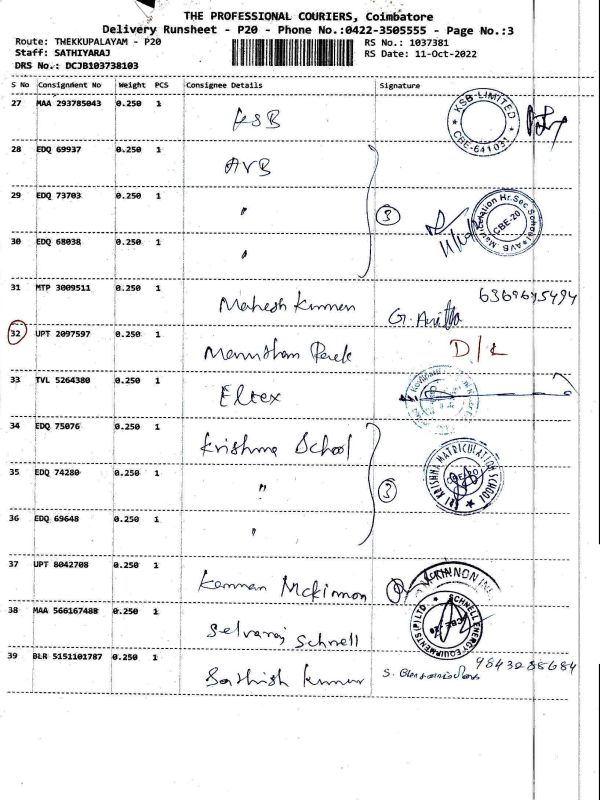 THE PROFESSIONAL COURIERS, Coimbatore
Delivery Runsheet - P20 - Phone No.:0422-3505555 - Page No.:3
Route: THEKKUPALAYAM - P20 RS No.: 1037381
Staff: SATHIYARAJ RS Date: 11-Oct-2022
DRS No.: DCJB103738103
S No Consignment No Weight PCS Consignee Details Signature
27 MAA 293785043 0.250 1 KSB KSB LIMITED * CBE-641031 *
28 EDQ 69937 0.250 1 AVB
29 EDQ 73703 0.250 1 " 3 Matriculation Hr.Sec School * AVB CBE-20
30 EDQ 68038 0.250 1 "
31 MTP 3009511 0.250 1 Mahesh Kumar G. Anitha
32 UPT 2097597 0.250 1 D/L
33 TVL 5264380 0.250 1 Eltex
34 EDQ 75076 0.250 1 Krishna School
35 EDQ 74280 0.250 1 " 3 SRI KRISHNA MATRICULATION SCHOOL
36 EDQ 69648 0.250 1 "
37 UPT 8042708 0.250 1 Kannan Mckinnon
38 MAA 566167488 0.250 1 Selvaraj Schnell SCHNELL ENERGY EQUIPMENTS (P) LTD
39 BLR 5151101787 0.250 1 Sathish Kumar